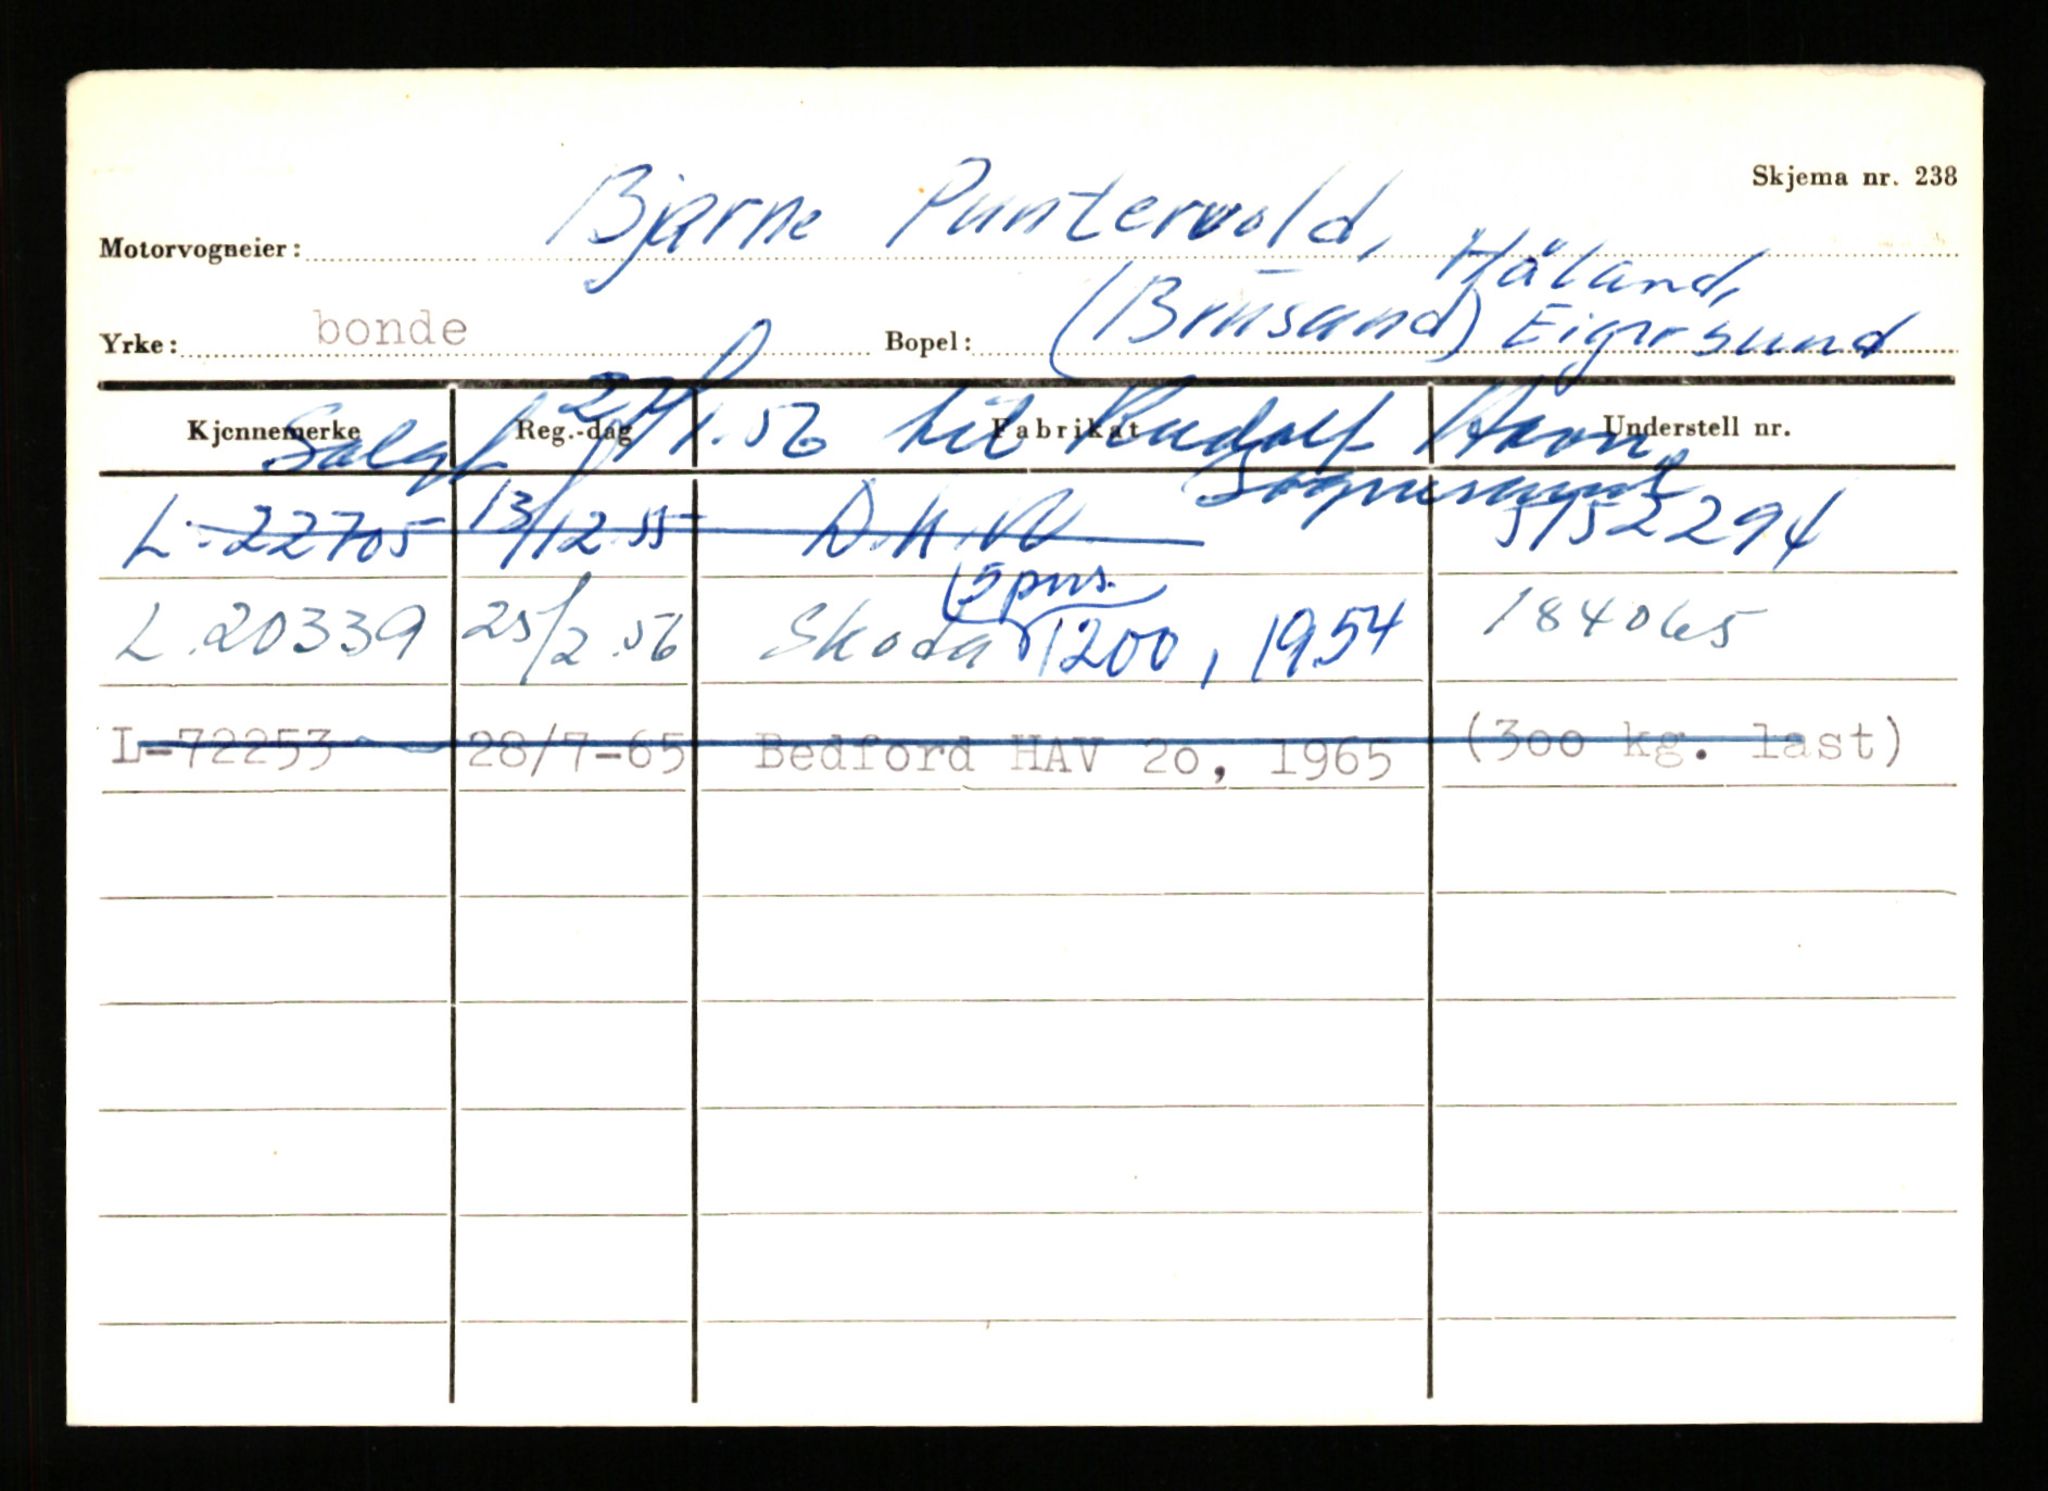 Skjema nr. 238
Motorvogneier: Bjarne Puntervold, Håland,
Yrke: bonde Bopel: (Brusand) Eigersund
Kjennemerke Reg.-dag Fabrikat Understell nr.
Solgt 27/1.56 til Rudolf Havn,
L.22705 13/12.55 D.K.W. 5152294
(5 pers.
L.20339 25/2.56 Skoda 1200, 1954 184065
L-72253 28/7-65 Bedford HAV 20, 1965 (300 kg. last)